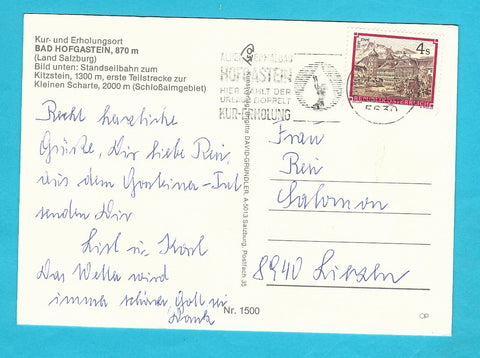 Kur- und Erholungsort
BAD HOFGASTEIN, 870 m
(Land Salzburg)
Bild unten: Standseilbahn zum
Kitzstein, 1300 m, erste Teilstrecke zur
Kleinen Scharte, 2000 m (Schloßalmgebiet)
HOFGASTEIN
HIER ZÄHLT DER
URLAUB DOPPELT
KUR-ERHOLUNG
4 S
REPUBLIK ÖSTERREICH
5630
Recht herzliche
Grüße, Dir liebe Resi,
aus dem Gasteiner-Tal
senden Dir
Liesl u. Karl
Das Wetter wird
immer schöner, Gott sei
Dank
Frau
Resi
Salomon
8940 Liezen
DAVID-GRÜNDLER, A-5013 Salzburg, Postfach 35
Nr. 1500